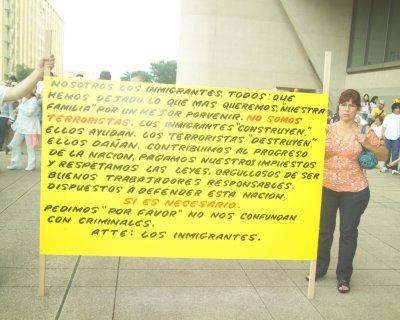 NOSOTROS LOS INMIGRANTES, TODOS: QUE
HEMOS DEJADO LO QUE MAS QUEREMOS, "NUESTRA
FAMILIA" POR UN MEJOR PORVENIR. NO SOMOS
TERRORISTAS. LOS INMIGRANTES "CONSTRUYEN,"
ELLOS AYUDAN. LOS TERRORISTAS "DESTRUYEN,"
ELLOS DAÑAN. CONTRIBUIMOS AL PROGRESO
DE LA NACION, PAGAMOS NUESTROS IMPUESTOS
Y RESPETAMOS LAS LEYES, ORGULLOSOS DE SER
BUENOS TRABAJADORES RESPONSABLES.
DISPUESTOS A DEFENDER ESTA NACION,
SI ES NECESARIO.
PEDIMOS "POR FAVOR" NO NOS CONFUNDAN
CON CRIMINALES.
ATTE: LOS INMIGRANTES.